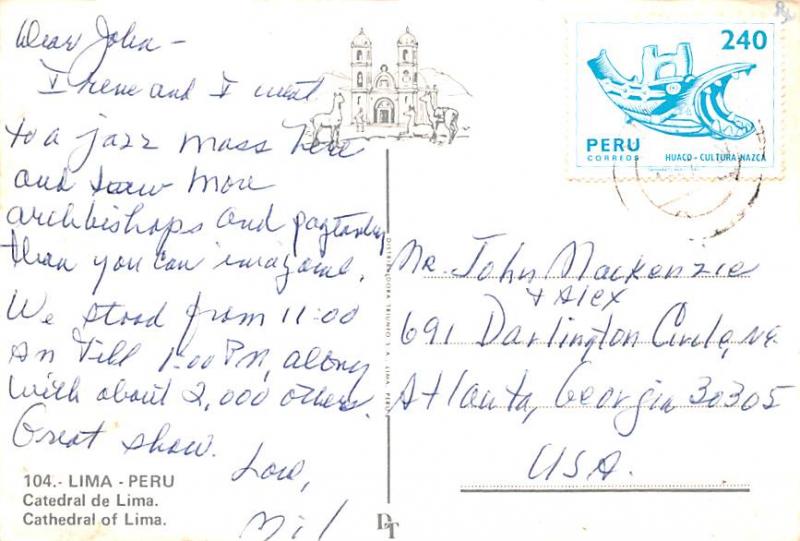 Dear John -
Irene and I went
to a jazz mass here
and saw more
archbishops and pagentry
than you can imagine.
We stood from 11:00
AM Till 1:00 PM, along
With about 2,000 others.
Great show.
Love,
104.- LIMA - PERU
Catedral de Lima.
Cathedral of Lima.
DISTRIBUIDORA TRIUNFO S.A. LIMA PERU
DT
240
PERU
CORREOS
HUACO - CULTURA NAZCA
Mr. John Mackenzie
+ Alex
691 Darlington Circle, NE.
Atlanta, Georgia 30305
USA.